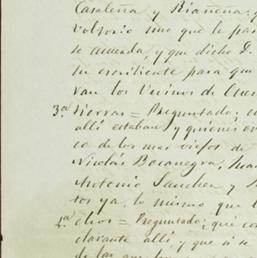 Casaleña y Riañena:
volvorio mas que le pa
se acuerda, y que dicho D.
su escribiente para que
van los Vecinos de Cue
3ª tierras = Preguntado; c
allí estaban y quienes er
co de los mas viejos de
Nicolás Bocanegra, Jua
Antonio Sanchez y
tos ya, lo mismo que
4ª dios = Preguntado; que co
clarante allí, y que si se
de las que